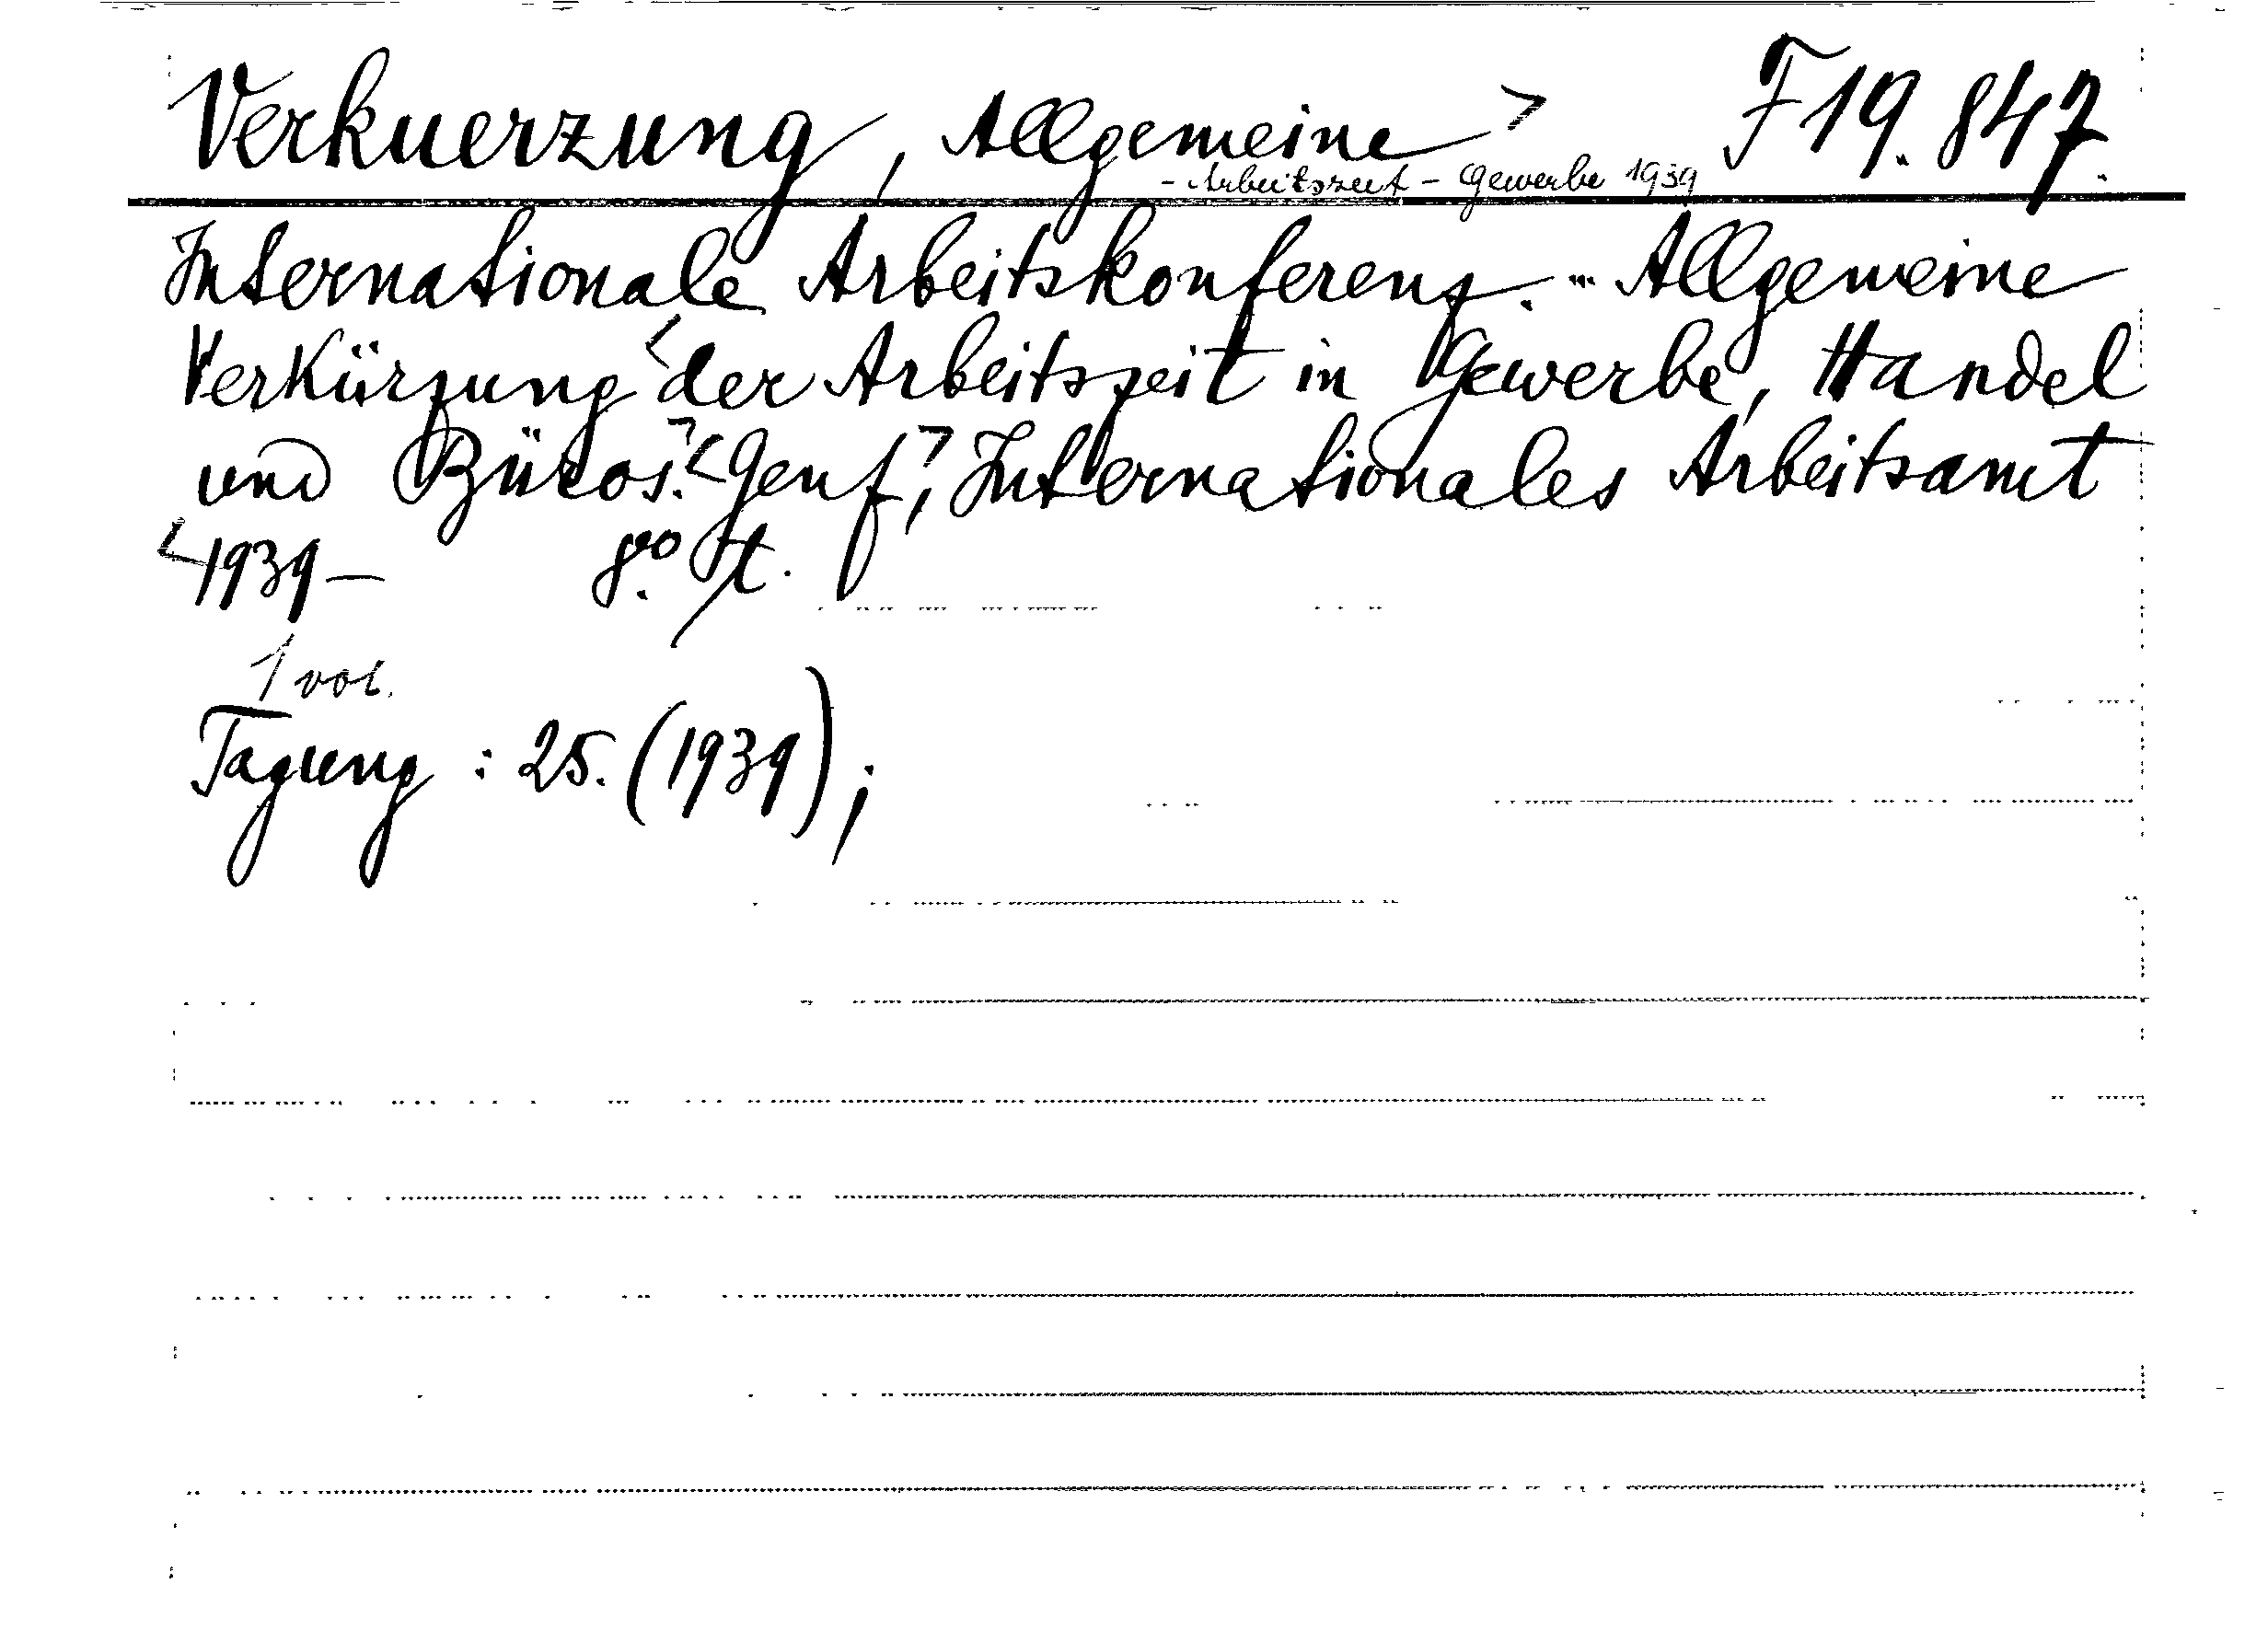 Verkuerzung, Allgemeine> F 19.847.
- Arbeitszeit - Gewerbe 1939
Internationale Arbeitskonferenz.- Allgemeine
Verkürzung <der Arbeitszeit in Gewerbe, Handel
und Büros.> <Genf>, Internationales Arbeitsamt
<1939 – 8o. t.
1 vol.
Tagung : 25. (1939);